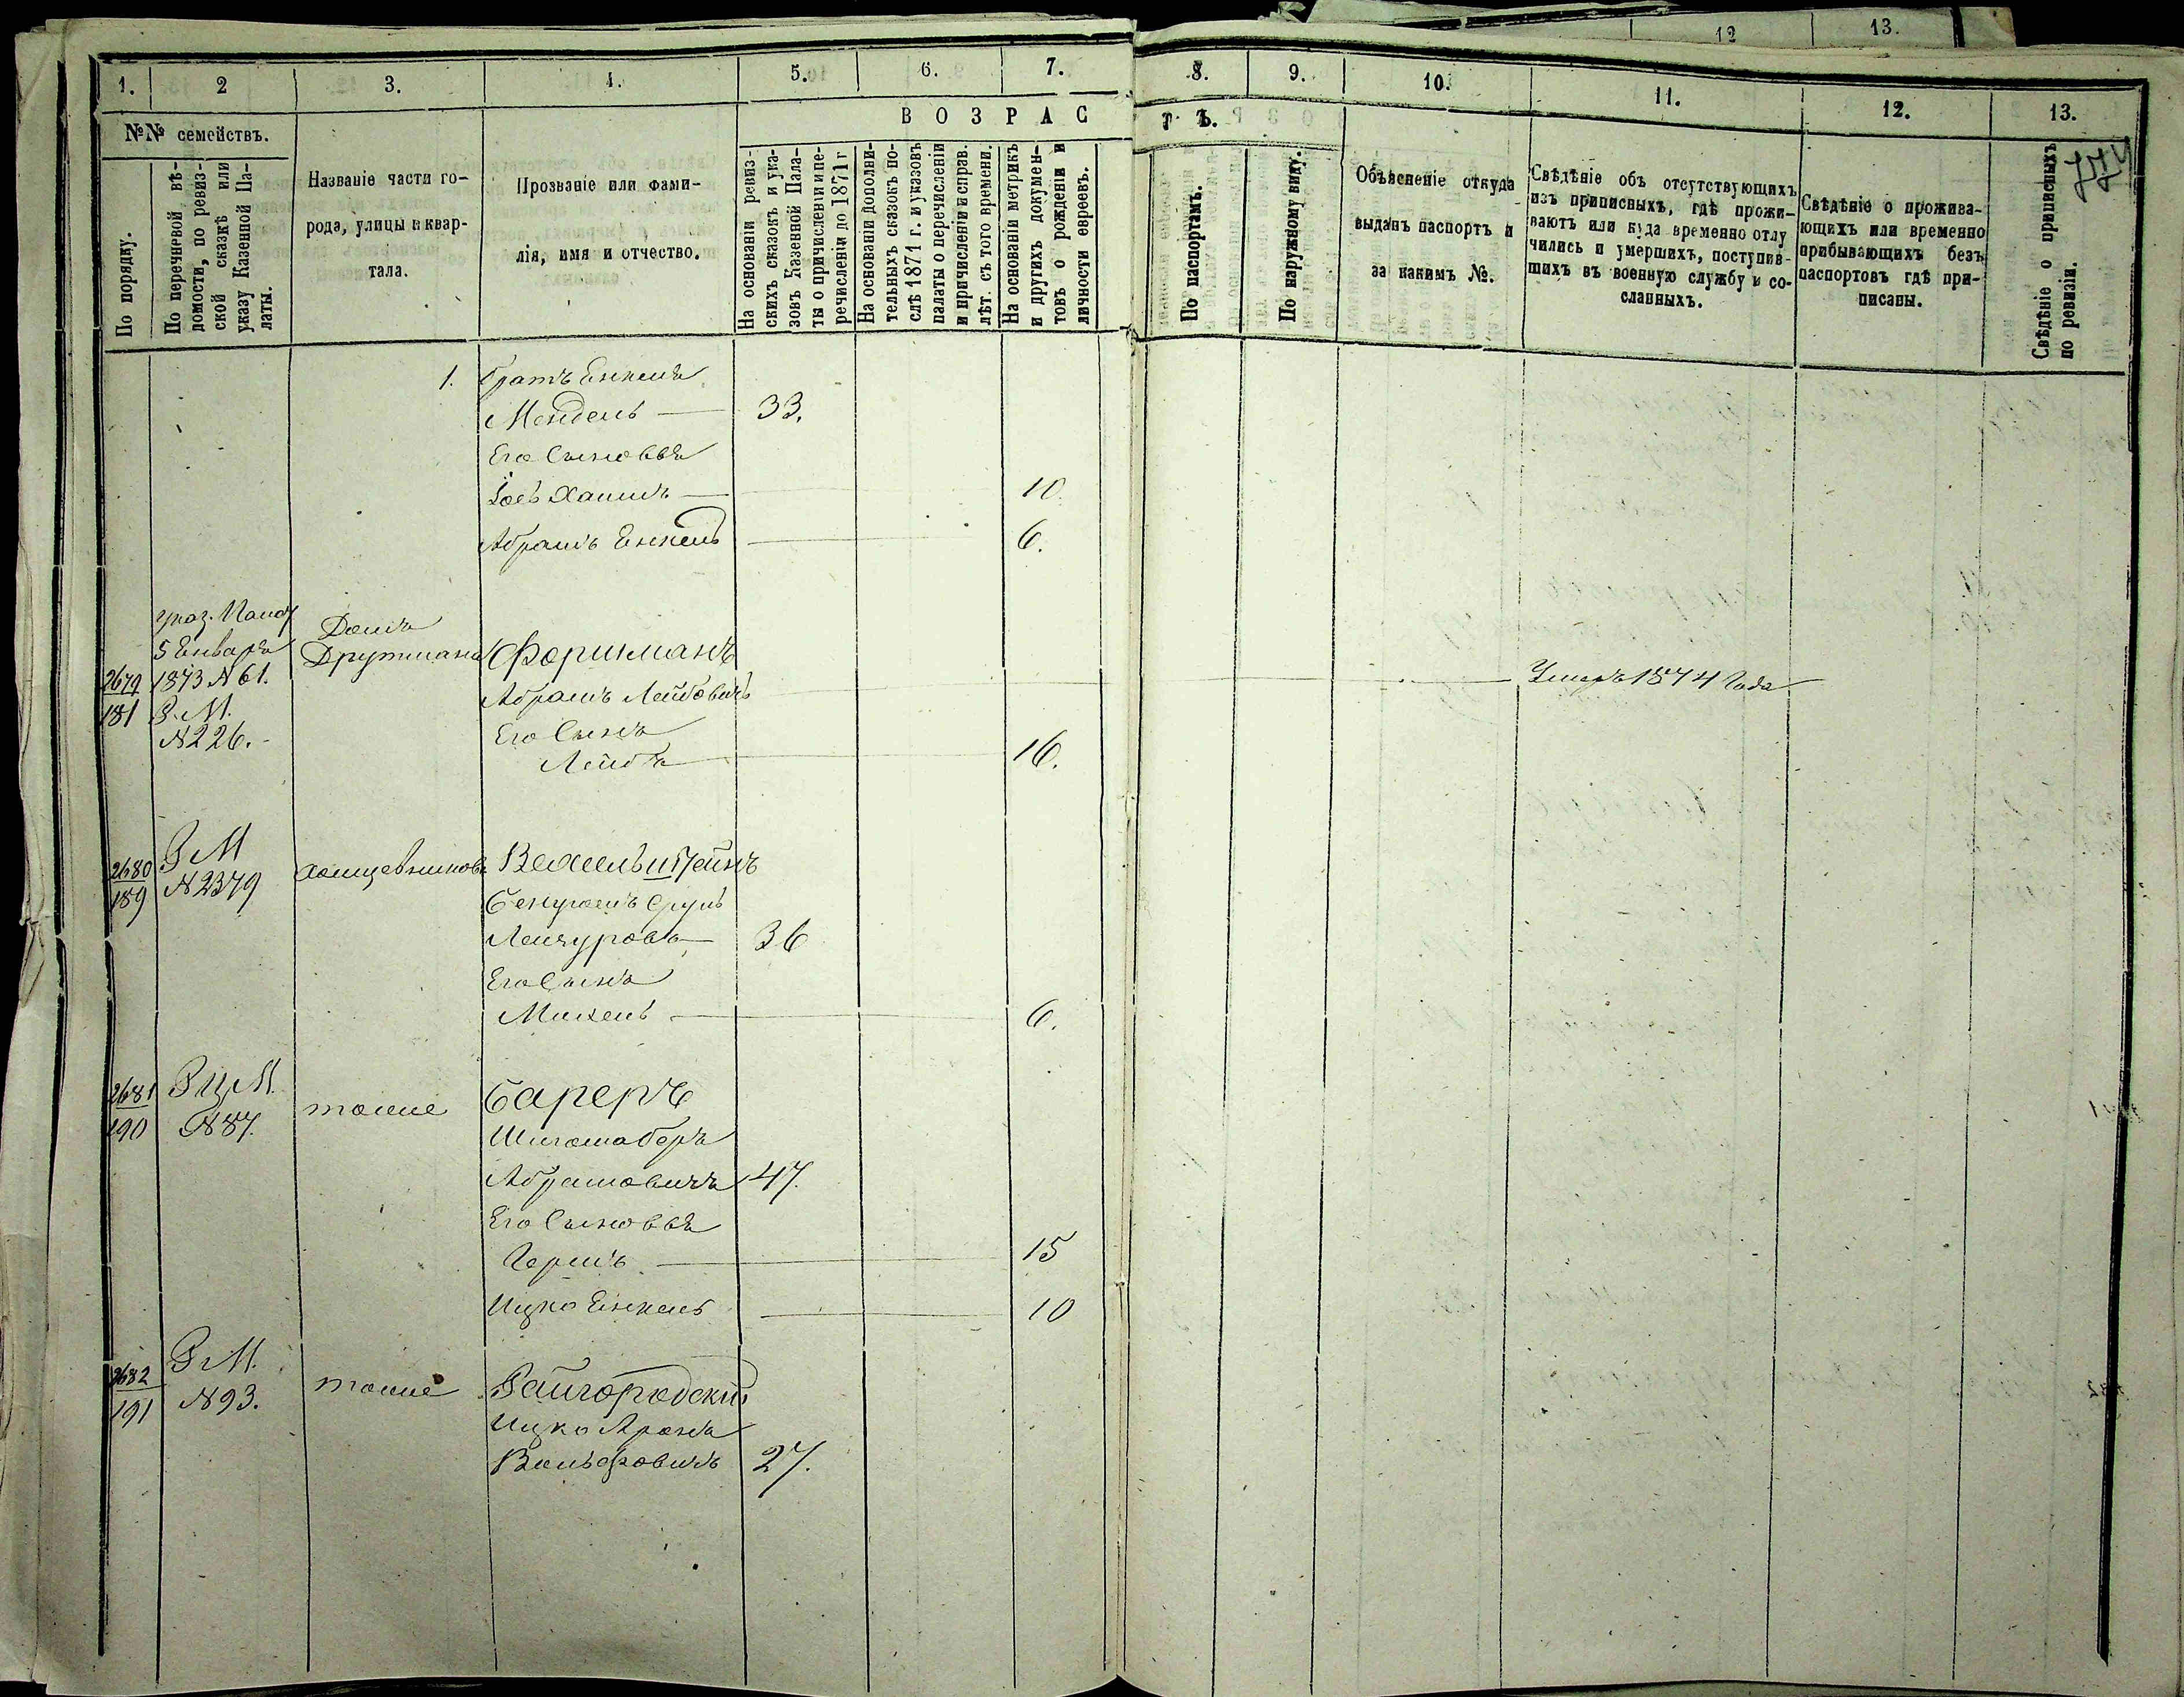 12 13.
1. 2 3. 4. 5. 6. 7. 8. 9. 10. 11. 12. 13.
№№ семействъ.
По порядку.
По перечневой вѣ-
домости, по ревиз-
ской сказкѣ или
указу Казенной Па-
латы.
Названіе части го-
рода, улицы и квар-
тала.
Прозваніе или фами-
лія, имя и отчество.
ВОЗРАСТЪ.
На основаніи ревиз-
скихъ сказокъ и ука-
зовъ Казенной Пала-
ты о причисленіи и пе-
речисленіи до 1871 г
На основаніи дополни-
тельныхъ сказокъ по-
слѣ 1871 г. и указовъ
палаты о перечисленіи
и причисленіи и справ.
лѣт. съ того времени.
На основаніи метрикъ
и другихъ докумен-
товъ о рожденіи и
личности евреевъ.
По паспортамъ.
По наружному виду.
Объясненіе откуда
выданъ паспортъ и
за какимъ №.
Свѣдѣніе объ отсутствующихъ
изъ приписныхъ, гдѣ прожи-
ваютъ или куда временно отлу
чились и умершихъ, поступив-
шихъ въ военную службу и со-
сланныхъ.
Свѣдѣніе о прожива-
ющихъ или временно
прибывающихъ безъ
паспортовъ гдѣ при-
писаны.
Свѣдѣніе о приписныхъ
по ревизіи.
1. Братъ Енкеля
Мендель 33.
Его Сыновья
Іось Хаимъ 10
Абрамъ Енкель 6.
указ. Палат
5 Января
1873 N 61.
Р. М.
N 226.
2679
181
Домъ
Друтмана
Форикманъ
Абрамъ Лейбовичъ Умеръ 1874 Года
Его Сынъ
Лейба 16.
2680
189
Р М
N 2379
Вексельштейнъ
Сруль
36
Его Сынъ
Михель 6.
2681
190
Р Ц М.
N 87.
тоже
Бареръ
Абрамовичъ 47.
Его Сыновья
Гершъ 15
Ицко Енкель 10
2682
191
Р М.
N 93.
тоже
Райгородскій
Ицко Арона
Вольфовичъ 27.